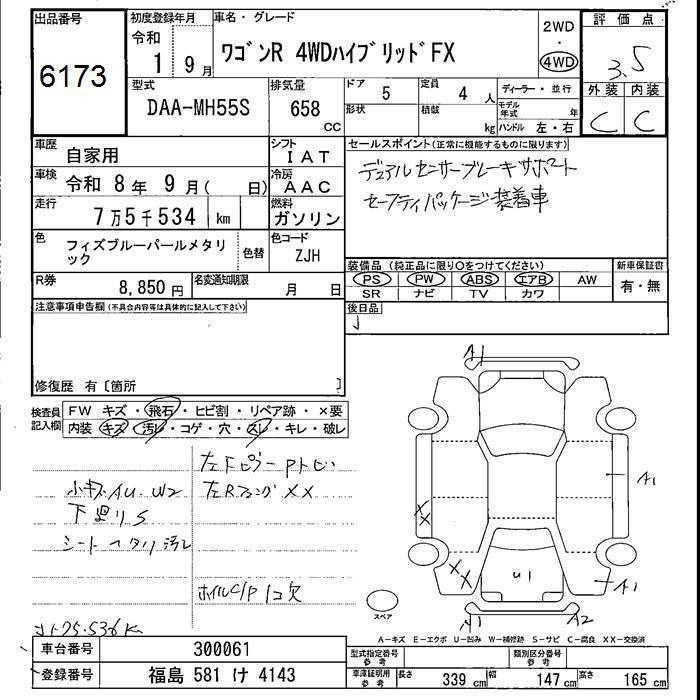 出品番号
6173
初度登録年月
令和
1 9月
車名・グレード
ワゴンR 4WDハイブリッドFX
2WD
・
4WD
評価点
3.5
外装 内装
C C
型式
DAA-MH55S
排気量
658
CC
ドア 5
形状
定員 4 人
積載 kg
ディーラー・並行
モデル年式 年
ハンドル 左・右
車歴 自家用
シフト IAT
車検 令和 8年 9月( 日)
冷房 AAC
走行 7万5千534 km
燃料 ガソリン
色 フィズブルーパールメタリック
色替
色コード ZJH
R券 8,850円
名変通知期限 月 日
セールスポイント(正常に機能するものに限ります)
デュアルセンサーブレーキサポート
セーフティパッケージ装着車
装備品(純正品に限り○をつけてください)
PS PW ABS エアB AW
SR ナビ TV カワ
新車保証書
有・無
後日品
注意事項申告欄(不具合内容等は具体的に記入して下さい)
修復歴 有〔箇所 〕
検査員記入欄
FW キズ・飛石・ヒビ割・リペア跡・×要
内装 キズ・汚レ・コゲ・穴・スレ・キレ・破レ
左Fピラー Pトビ
小キズ AU.W2
左Rフェンダ XX
下廻りS
シートヘタリ汚レ
ホイルC/P 1コ欠
A1
A1
XX
XX
U1
A1
A1
A2
スペア
A-キズ E-エクボ U-凹み W-補修跡 S-サビ C-腐食 XX-交換済
車台番号 300061
登録番号 福島 581 け 4143
型式指定番号
参考
類別区分番号
参考
車庫証明用
参考
長さ 339 cm
幅 147 cm
高さ 165 cm